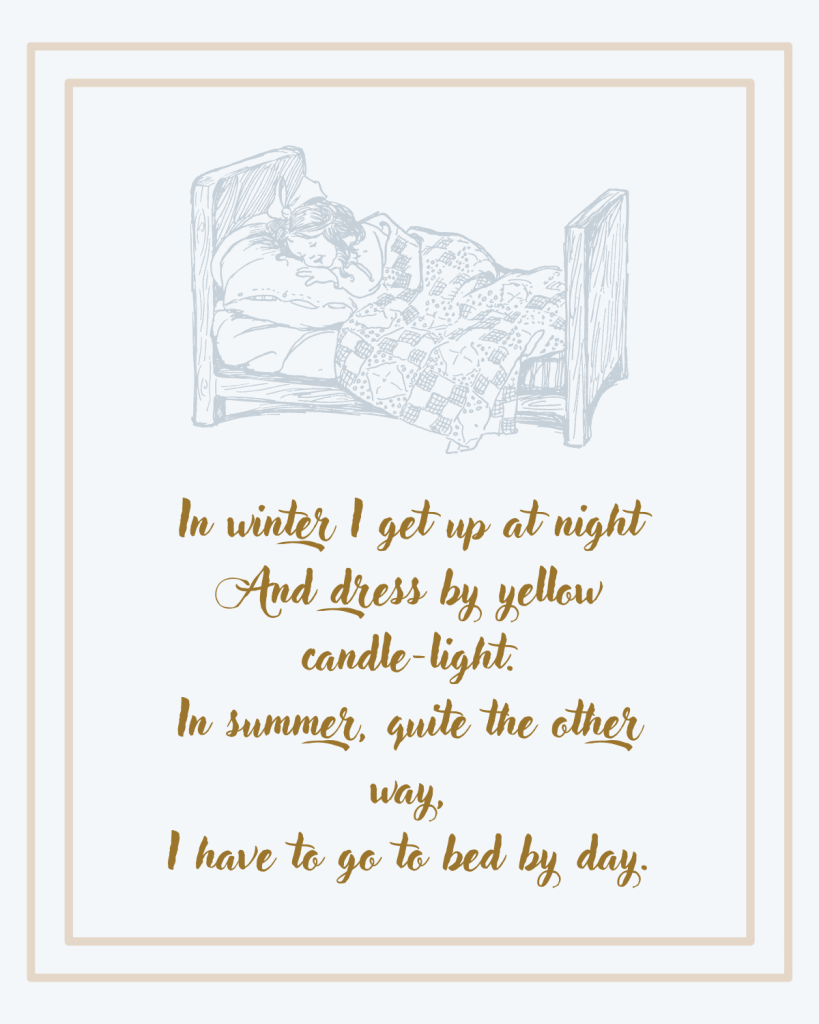 In winter I get up at night
And dress by yellow
candle-light.
In summer, quite the other
way,
I have to go to bed by day.